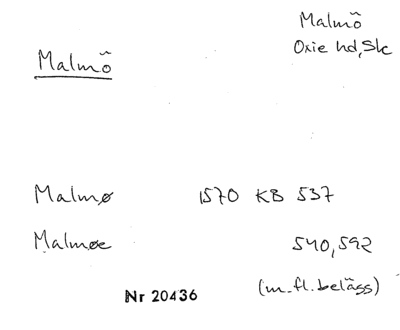 Malmö
Oxie hd, Sk
Malmö
Malmø 1570 KB 537
Malmøe 540, 592
(m. fl. belägg)
Nr 20436